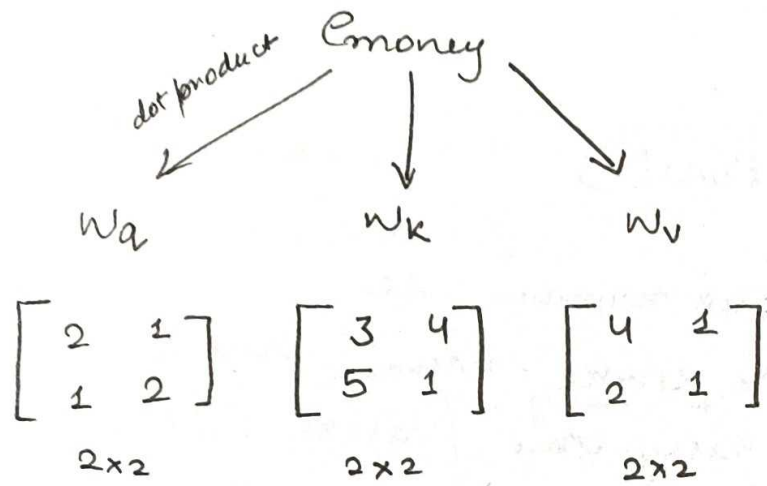 emoney
dot product
Wq Wk Wv
2 1 3 4 4 1
1 2 5 1 2 1
2×2 2×2 2×2